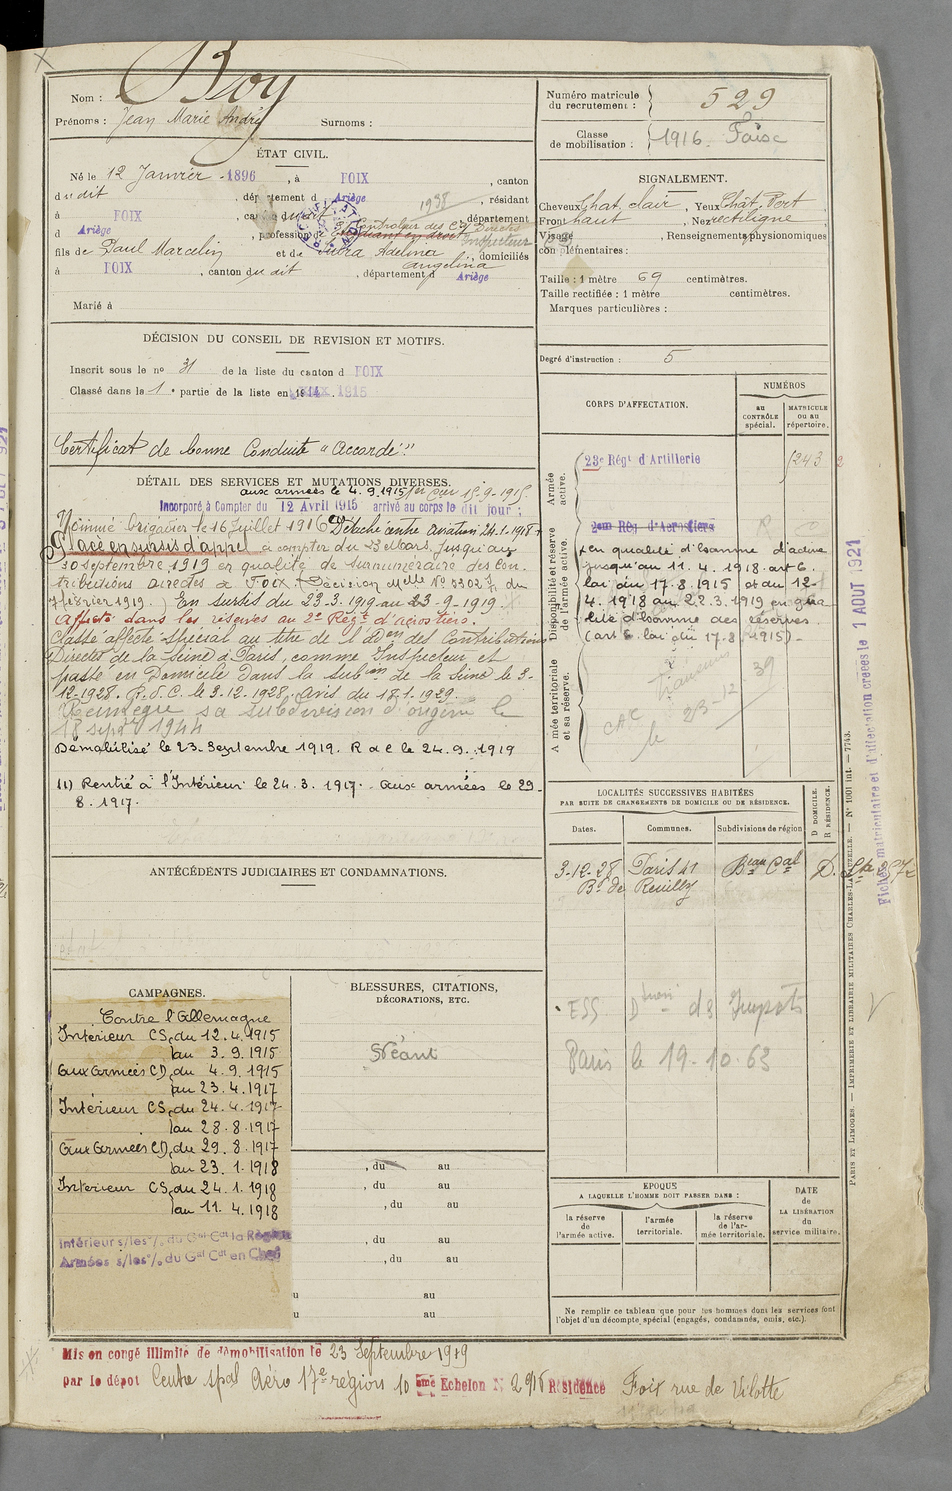 Nom : Boy
Prénoms : Jean Marie André Surnoms :
Numéro matricule du recrutement : 529
Classe de mobilisation : 1916.
ÉTAT CIVIL.
Né le 12 Janvier 1896, à FOIX, canton
du dit, département d Ariège, résidant
à FOIX, canton du dit, département
1938
d Ariège, profession d Etudiant en droit
Controleur des Directes
Inspecteur
fils de Paul Marcelin et de Adelina, domiciliés
Angelina
à FOIX, canton du dit, département d Ariège
Marié à
SIGNALEMENT.
Cheveux Chat. clair, Yeux Chat. Vert
Front haut, Nez rectiligne
Visage, Renseignements physionomiques
complémentaires :
Taille : 1 mètre 69 centimètres.
Taille rectifiée : 1 mètre centimètres.
Marques particulières :
Degré d'instruction : 5
DÉCISION DU CONSEIL DE REVISION ET MOTIFS.
Inscrit sous le no 31 de la liste du canton d FOIX
Classé dans la 1e partie de la liste en 1915
Certificat de bonne Conduite "Accordé"
DÉTAIL DES SERVICES ET MUTATIONS DIVERSES.
aux armées le 4.9.1915
Incorporé à Compter du 12 Avril 1915 arrivé au corps le dit jour ;
Nommé Brigadier le 16 Juillet 1916 Détaché centre aviation 24.1.1918
Placé en sursis d'appel à compter du 23 Mars jusqu'au
30 septembre 1919 en qualité de surnuméraire des con-
tributions directes à Foix. Décision du
7 février 1919.) En sursis du 23.3.1919 au 23-9-1919.
Affecté dans les réserves au 2e Régt d'aérostiers.
Classé affecté spécial au titre de l'Adon des Contributions
Directes de la Seine à Paris, comme Inspecteur et
passé en Domicile dans la subon de la Seine le 3-
12-1928. le 3-12-1928. Avis du 18-1-1929.
Réintègre sa subdivision d'origine le
18 septbre 1944
Démobilisé le 23 Septembre 1919. R d C le 24.9.1919
(1) Rentré à l'Intérieur le 24.3.1917. Aux armées le 29-
8.1917.
CORPS D'AFFECTATION.
NUMÉROS
au CONTRÔLE spécial.
MATRICULE ou au répertoire.
Armée active.
23e Régt d'Artillerie
243
Disponibilité et réserve de l'armée active.
2em Rég d'Aerostiers
en qualité d'homme d'active
jusqu'au 11.4.1918. art 6.
loi du 17.8.1915 et du 12-
4.1918 au 22.3.1919 en qua-
lité d'homme des réserves.
(art 6. loi du 17.8.1915)-
Armée territoriale et sa réserve.
le 23-12-39
Fiches matriculaire et d'affectation créées le 1 AOUT 1921
LOCALITÉS SUCCESSIVES HABITÉES
PAR SUITE DE CHANGEMENTS DE DOMICILE OU DE RÉSIDENCE.
D DOMICILE.
R RÉSIDENCE.
Dates. Communes. Subdivisions de région
3-12-28 Paris Beau Cal D.
Bd de Reuilly
ESS Don des Impots
Paris le 19-10-63
ANTÉCÉDENTS JUDICIAIRES ET CONDAMNATIONS.
CAMPAGNES.
Contre l'Allemagne
Intérieur CS du 12.4.1915
au 3.9.1915
Aux Armées CD du 4.9.1915
au 23.4.1917
Intérieur CS du 24.4.1917
au 28.8.1917
Aux Armées CD du 29.8.1917
au 23.1.1918
Intérieur CS du 24.1.1918
au 11.4.1918
Intérieur s/les o/o du Gal Cdt la Région
Armées s/les o/o du Gal Cdt en Chef
BLESSURES, CITATIONS,
DÉCORATIONS, ETC.
Néant
, du au
, du au
, du au
, du au
, du au
u au
u au
EPOQUE
A LAQUELLE L'HOMME DOIT PASSER DANS :
la réserve de l'armée active.
l'armée territoriale.
la réserve de l'armée territoriale.
DATE de LA LIBÉRATION du service militaire.
Ne remplir ce tableau que pour les hommes dont les services font
l'objet d'un décompte spécial (engagés, condamnés, omis, etc.).
PARIS ET LIMOGES. — IMPRIMERIE ET LIBRAIRIE MILITAIRES CHARLES-LAVAUZELLE. — N° 1001 int. — 7743.
Mis en congé illimité de démobilisation le 23 Septembre 1919
par le dépot Centre spal Aéro 17e région 10 ème Echelon N° 2916 Résidence Foix rue de Vilotte